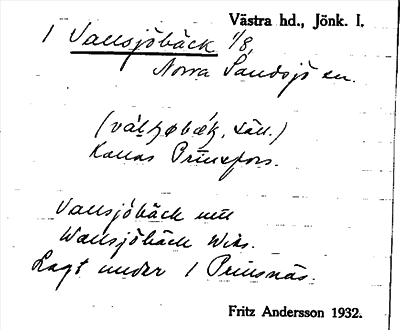 Västra hd., Jönk. l.
1 Vallsjöbäck 1/8
Norra Sandsjö sn.
Kallas Prinsfors.
Vallsjöbäck
Wallsjöbäck Wibs.
Lagt under 1 Prinsnäs.
Fritz Andersson 1932.